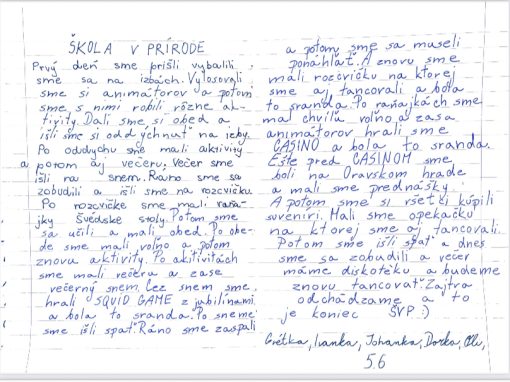 ŠKOLA V PRÍRODE
Prvý deň sme prišli vybalili
sme sa na izbách. Vylosovali
sme si animátorov a potom
sme s nimi robili rôzne ak-
tivity. Dali sme si obed a
išli sme si oddýchnuť na izby.
Po oddychu sme mali aktivity
a potom aj večeru. Večer sme
išli na snem. Ráno sme sa
zobudili a išli sme na rozcvičku
Po rozcvičke sme mali raňa-
jky švédske stoly. Potom sme
sa učili a mali obed. Po obe-
de sme mali voľno a potom
znovu aktivity. Po aktivitách
sme mali večeru a zase
večerný snem. Cez snem sme
hrali SQUID GAME z jubilínami
a bola to sranda. Po sneme
sme išli spať. Ráno sme zaspali
a potom sme sa museli
ponáhľať. A znovu sme
mali rozcvičku na ktorej
sme aj tancovali a bola
to sranda. Po raňajkách sme
mal chvíľu voľno a zasa
animátorov hrali sme
CASINO a bola to sranda.
Ešte pred CASINOM sme
boli na Oravskom hrade
a mali sme prednášky.
A potom sme si všetci kúpili
suveníri. Mali sme opekačku
na ktorej sme aj tancovali.
Potom sme išli spať a dnes
sme sa zobudili a večer
máme diskotéku a budeme
znovu tancovať. Zajtra
odchádzame a to
je koniec ŠVP :)
Grétka, Ivanka, Johanka, Dorka,
5.6